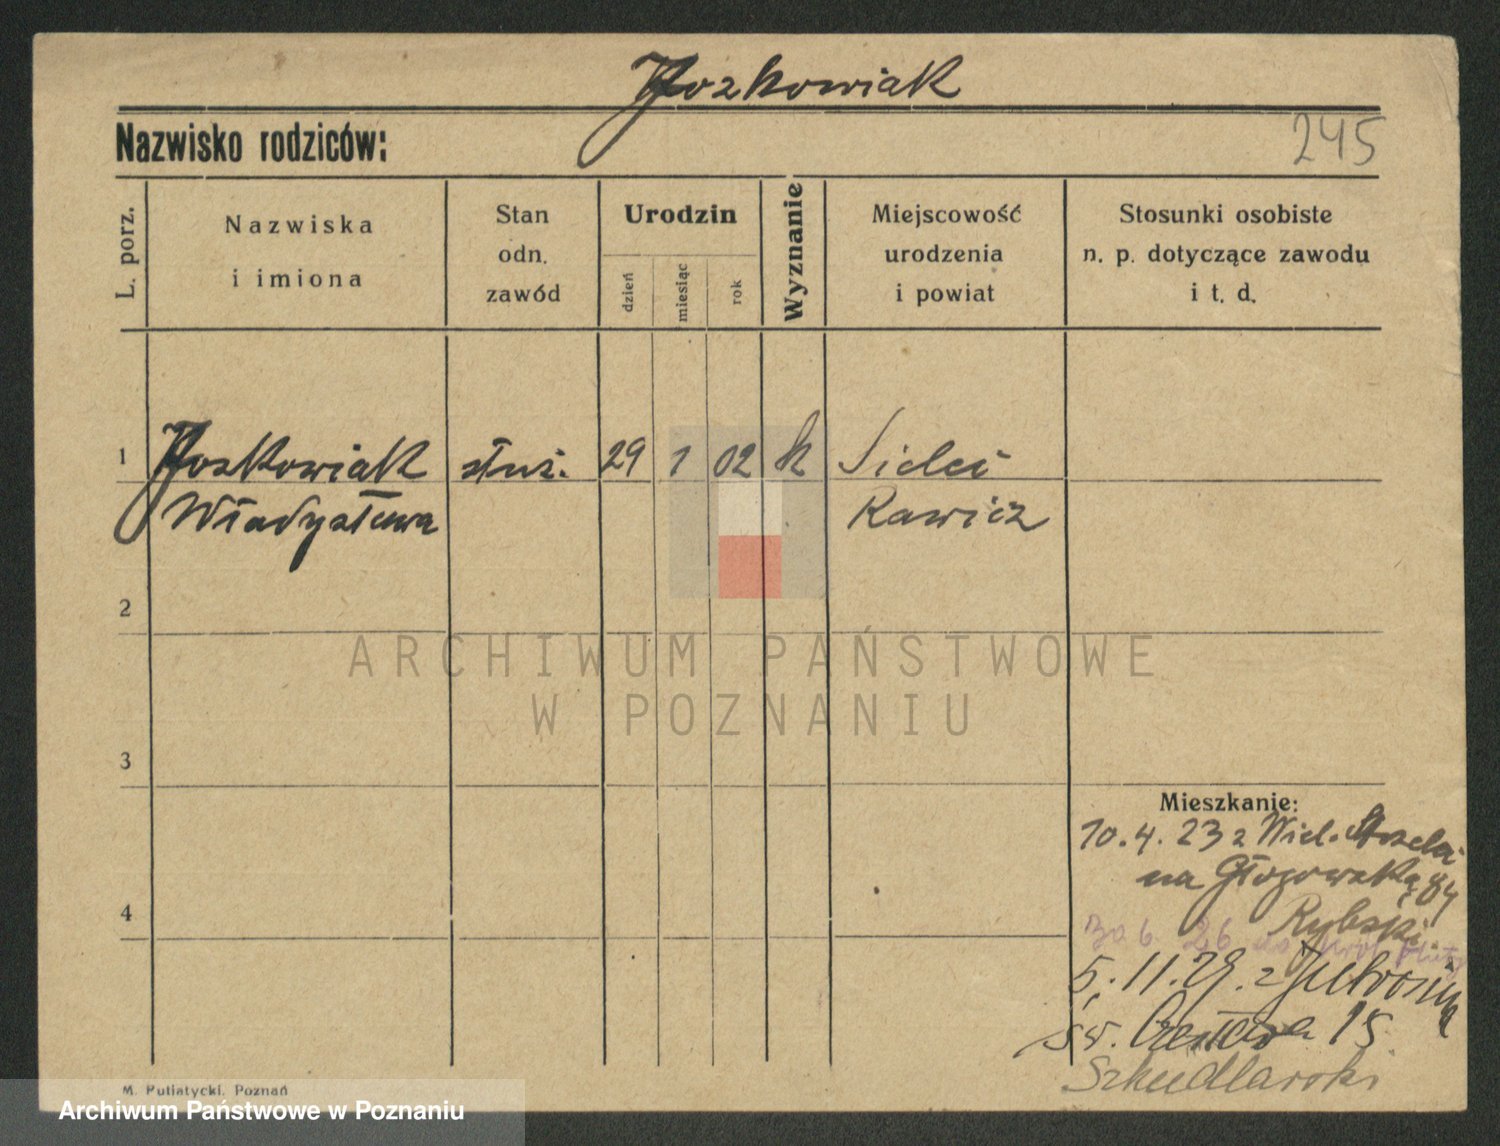 Jozkowiak
Nazwisko rodziców:
245
L. porz.
Nazwiska
i imiona
Stan
odn.
zawód
Urodzin
dzień
miesiąc
rok
Wyznanie
Miejscowość
urodzenia
i powiat
Stosunki osobiste
n. p. dotyczące zawodu
i t. d.
1 Joskowiak służ. 29 1 02 k Sielec
Władysława Rawicz
2
ARCHIWUM PAŃSTWOWE
W POZNANIU
3
Mieszkanie:
10.4.23 z Wiel.
na Głogowską 84
4
Rybski
30.6.26 do
5.11.29. z
św. Czesława 15
Szkudlarski
M. Putiatycki, Poznań
Archiwum Państwowe w Poznaniu